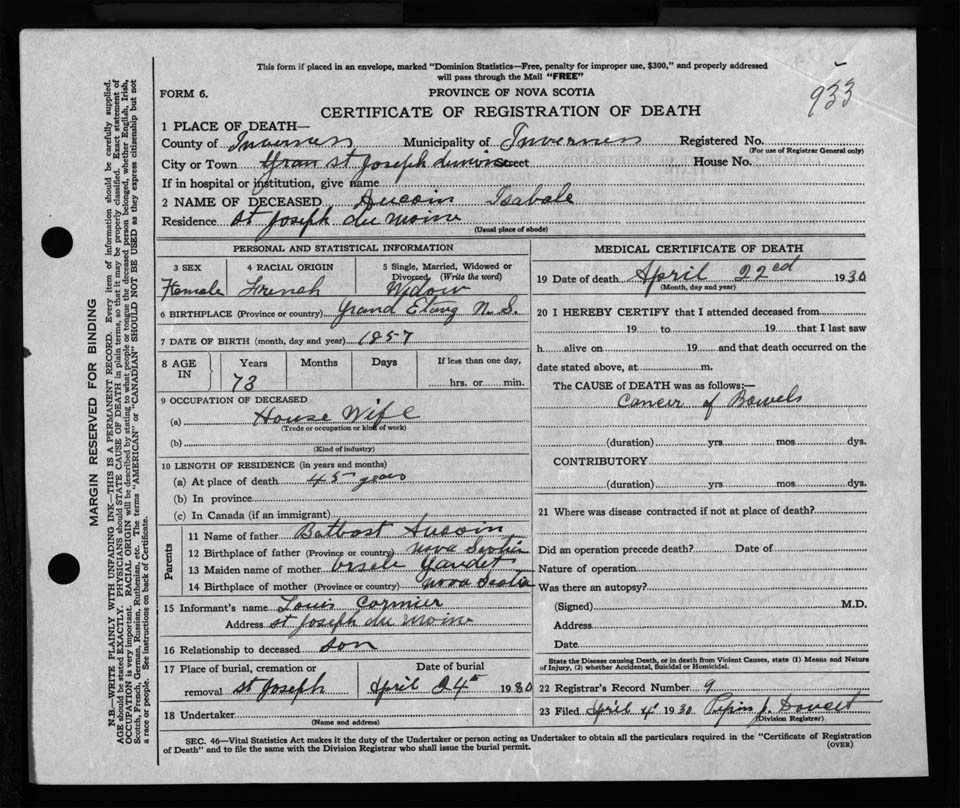 This form if placed in an envelope, marked "Dominion Statistics—Free, penalty for improper use, $300," and properly addressed
will pass through the Mail "FREE"
933
FORM 6. PROVINCE OF NOVA SCOTIA
CERTIFICATE OF REGISTRATION OF DEATH
1 PLACE OF DEATH—
County of Inverness Municipality of Inverness Registered No.
(For use of Registrar General only)
City or Town St Joseph dumoine Street House No.
If in hospital or institution, give name
2 NAME OF DECEASED Aucoin Isabale
Residence St Joseph du Moine
(Usual place of abode)
PERSONAL AND STATISTICAL INFORMATION
3 SEX 4 RACIAL ORIGIN 5 Single, Married, Widowed or
Divorced (Write the word)
Female French Widow
6 BIRTHPLACE (Province or country) Grand Etang N. S.
7 DATE OF BIRTH (month, day and year) 1857
8 AGE IN Years Months Days If less than one day,
73 hrs. or min.
9 OCCUPATION OF DECEASED
(a) House Wife
(Trade or occupation or kind of work)
(b)
(Kind of industry)
10 LENGTH OF RESIDENCE (in years and months)
(a) At place of death 45 years
(b) In province
(c) In Canada (if an immigrant)
Parents
11 Name of father Batbost Aucoin
12 Birthplace of father (Province or country) Nova Scotia
13 Maiden name of mother Ersele Gaudet
14 Birthplace of mother (Province or country) Nova Scotia
15 Informant's name Louis Cormier
Address St Joseph du Moine
16 Relationship to deceased son
17 Place of burial, cremation or Date of burial
removal St Joseph April 24th 1930
18 Undertaker
(Name and address)
MEDICAL CERTIFICATE OF DEATH
19 Date of death April 22cd 1930
(Month, day and year)
20 I HEREBY CERTIFY that I attended deceased from
19 to 19 that I last saw
h alive on 19 and that death occurred on the
date stated above, at m.
The CAUSE OF DEATH was as follows:—
Cancer of Bowels
(duration) yrs. mos. dys.
CONTRIBUTORY
(duration) yrs. mos. dys.
21 Where was disease contracted if not at place of death?
Did an operation precede death? Date of
Nature of operation
Was there an autopsy?
(Signed) M.D.
Address
Date
State the Disease causing Death, or in death from Violent Causes, state (1) Means and Nature
of Injury, (2) whether Accidental, Suicidal or Homicidal.
22 Registrar's Record Number 9
23 Filed April 4 1930 J. Doucet
(Division Registrar)
SEC. 46—Vital Statistics Act makes it the duty of the Undertaker or person acting as Undertaker to obtain all the particulars required in the "Certificate of Registration
of Death" and to file the same with the Division Registrar who shall issue the burial permit. (OVER)
MARGIN RESERVED FOR BINDING
N.B.—WRITE PLAINLY WITH UNFADING INK—THIS IS A PERMANENT RECORD. Every item of information should be carefully supplied.
AGE should be stated EXACTLY. PHYSICIANS should STATE CAUSE OF DEATH in plain terms, so that it may be properly classified. Exact statement of
OCCUPATION is very important. RACIAL ORIGIN will be described by stating to what people or tongue the deceased person belonged, whether English, Irish,
Scotch, French, German, Russian, Ruthenian, etc. The terms "AMERICAN" or "CANADIAN" SHOULD NOT BE USED as they express citizenship but not
a race or people. See instructions on back of Certificate.